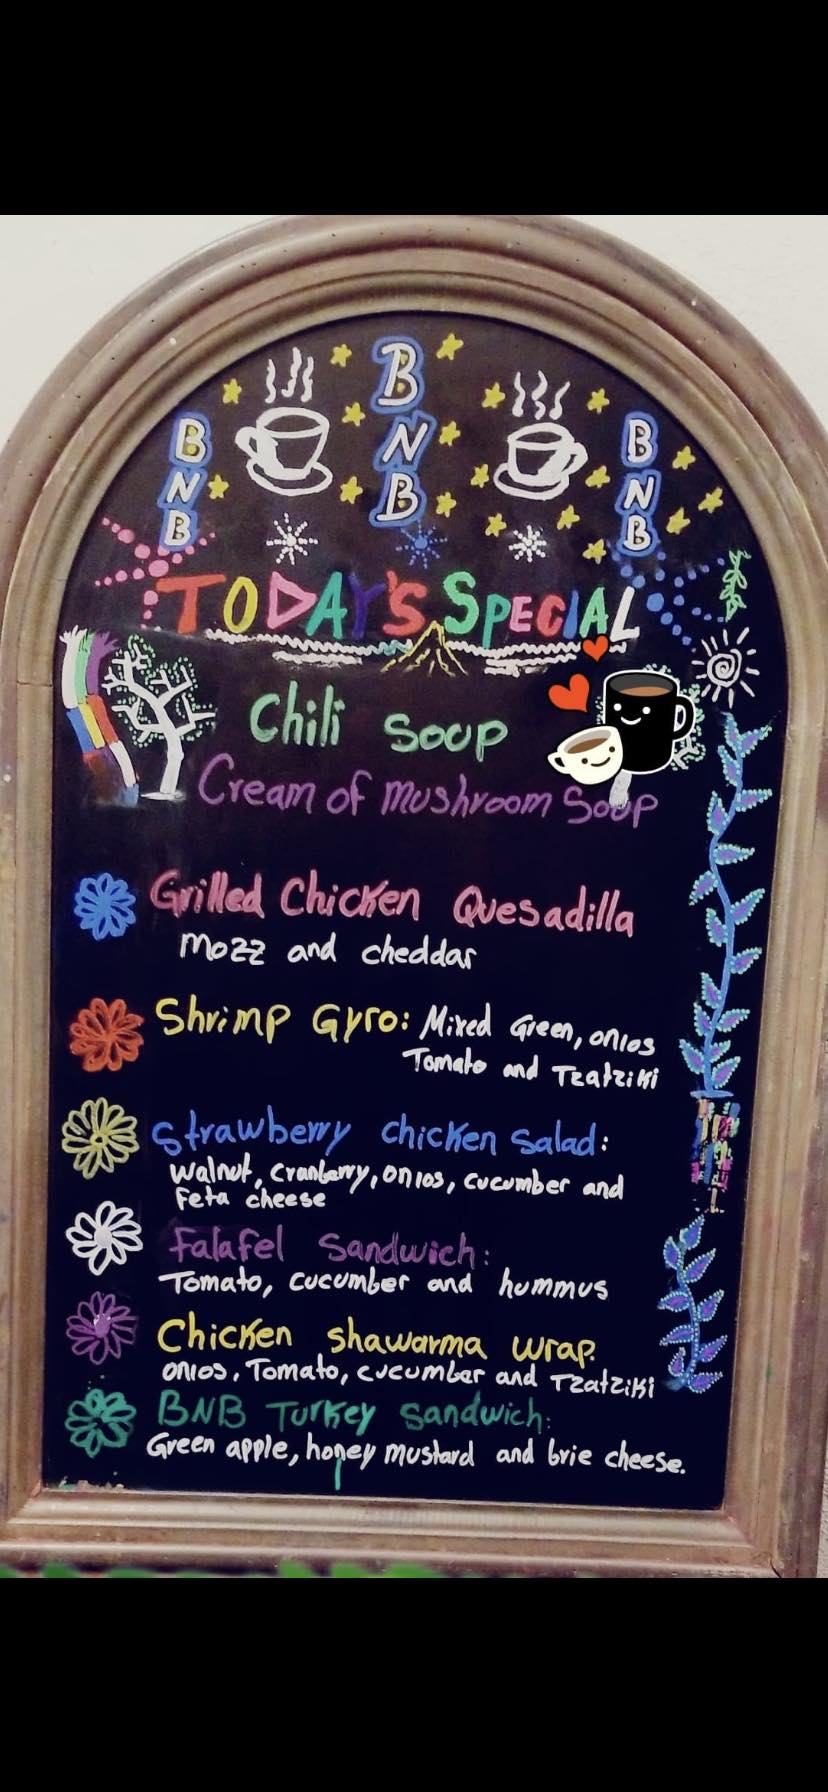 BNB
BNB
BNB
TODAY'S SPECIAL
Chili Soup
Cream of mushroom Soup
Grilled Chicken Quesadilla
mozz and cheddar
Shrimp Gyro: Mixed Green, onios
Tomato and Tzatziki
Strawberry chicken salad:
walnut, cranberry, onios, cucumber and
feta cheese
Falafel Sandwich:
Tomato, cucumber and hummus
Chicken shawarma wrap.
onios, Tomato, cucumber and Tzatziki
BNB Turkey Sandwich:
Green apple, honey mustard and brie cheese.